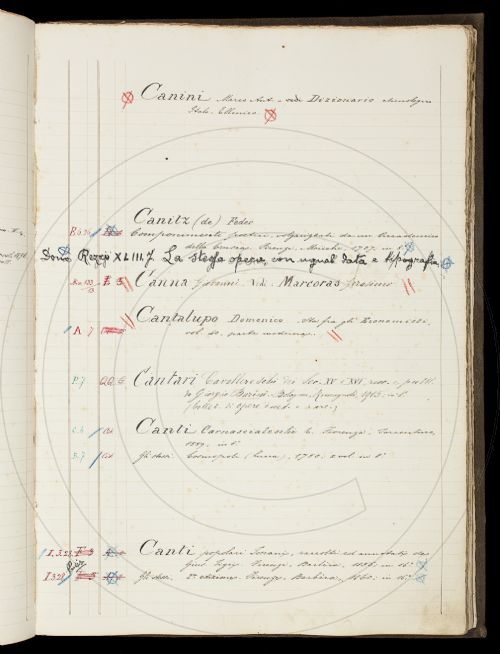 Canini Marco Ant. vedi Dizionario etimologico
Italo-Ellenico
Canitz (de) Feder
Componimenti poetici, volgarizzati da un Accademico
della Crusca. Firenze, 1757. in 8°
Dono Rezzo XLIII.7. La stessa opera, con ugual data e tipografia.
Canna Giovanni Vedi Marcoras Gerasimo
A 7 Cantalupo Domenico. Sta fra gli Economisti,
vol. parte moderna.
P. 7 Cantari Cavallereschi dei Sec. XV e XVI, racc. e pubbl.
da Giorgio Barini. Bologna, Romagnoli, 1905. in 8°
(Collez. di opere ined. o rare.)
Canti Carnascialeschi
1559. in 8°
B. 7 Gli stessi Cosmopoli (Lucca), 1750. 2 vol. in 8°
Canti popolari Toscani, raccolti ed annotati da
Gius. Tigri. Firenze, Barbèra, 1856. in 16°
Gli stessi. 2ª edizione. Firenze, Barbèra, 1860. in 16°